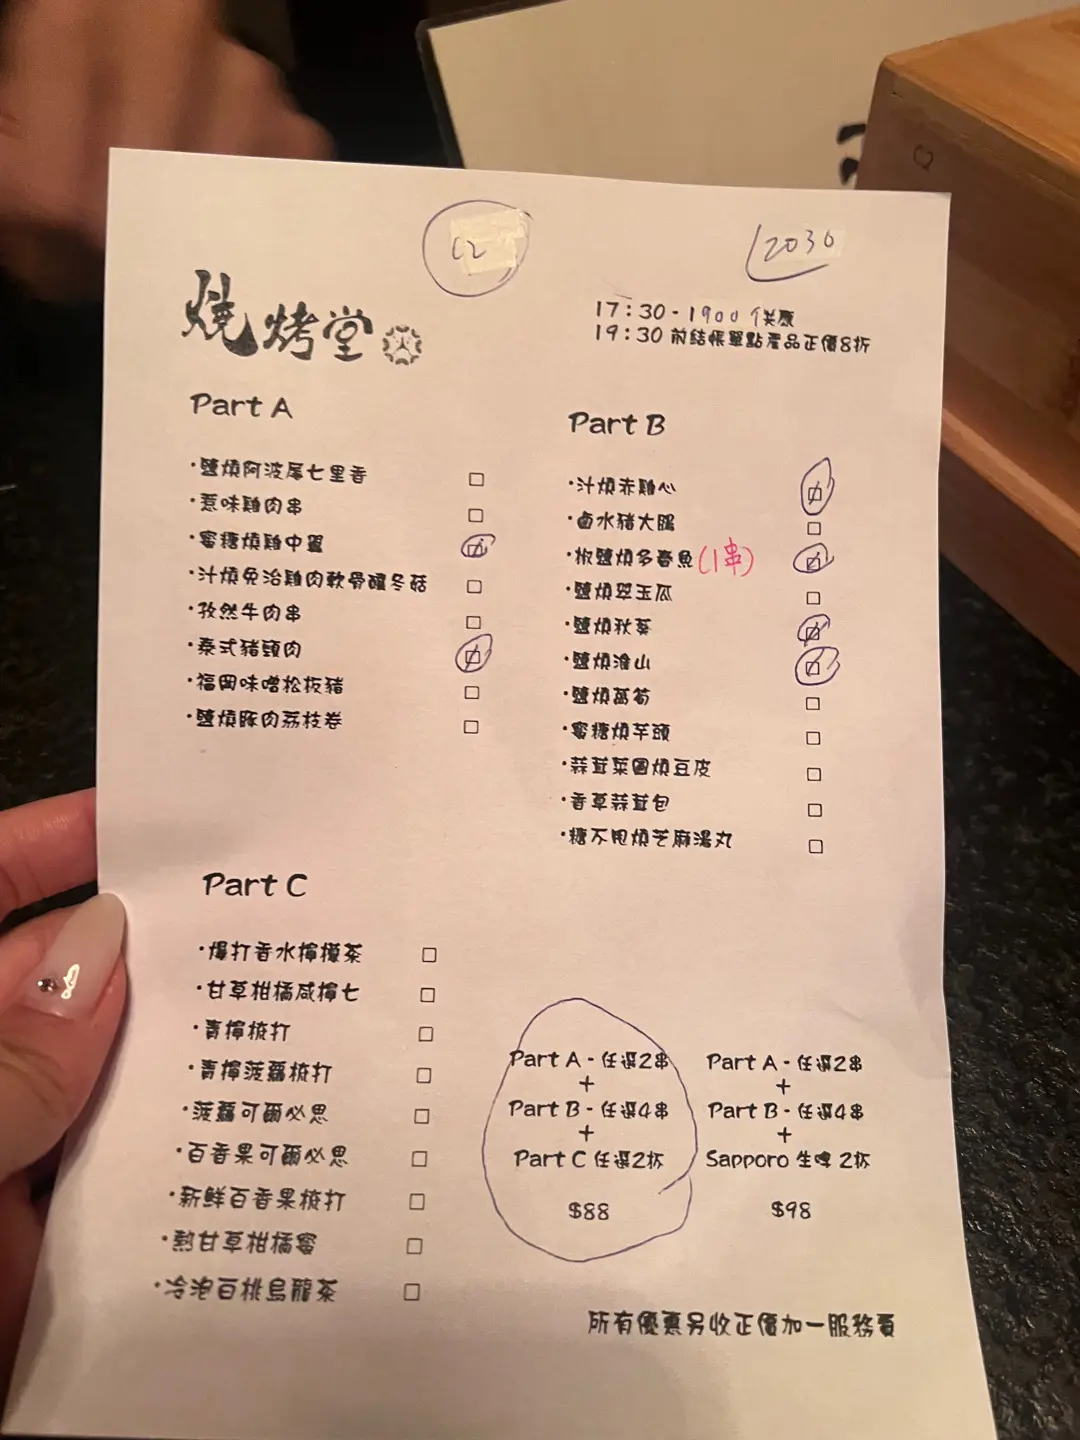 12
2030
燒烤堂
17:30-1900 供應
19:30 前結帳單點產品正價8折
Part A
·鹽燒阿波尾七里香
·惹味雞肉串
·蜜糖燒雞中翼
·汁燒免治雞肉軟骨釀冬菇
·孜然牛肉串
·泰式豬頸肉
·福岡味噌松板豬
·鹽燒豚肉荔枝卷
Part B
·汁燒赤雞心
·鹵水豬大腸
·椒鹽燒多春魚 (1串)
·鹽燒翠玉瓜
·鹽燒秋葵
·鹽燒淮山
·鹽燒萵筍
·蜜糖燒芋頭
·蒜茸菜圃燒豆皮
·香草蒜茸包
·糖不甩燒芝麻湯丸
Part C
·爆打香水檸檬茶
·甘草柑橘咸檸七
·青檸梳打
·青檸菠蘿梳打
·菠蘿可爾必思
·百香果可爾必思
·新鮮百香果梳打
·熱甘草柑橘蜜
·冷泡白桃烏龍茶
Part A - 任選2串
+
Part B - 任選4串
+
Part C 任選2杯
$88
Part A - 任選2串
+
Part B - 任選4串
+
Sapporo 生啤 2杯
$98
所有優惠另收正價加一服務費